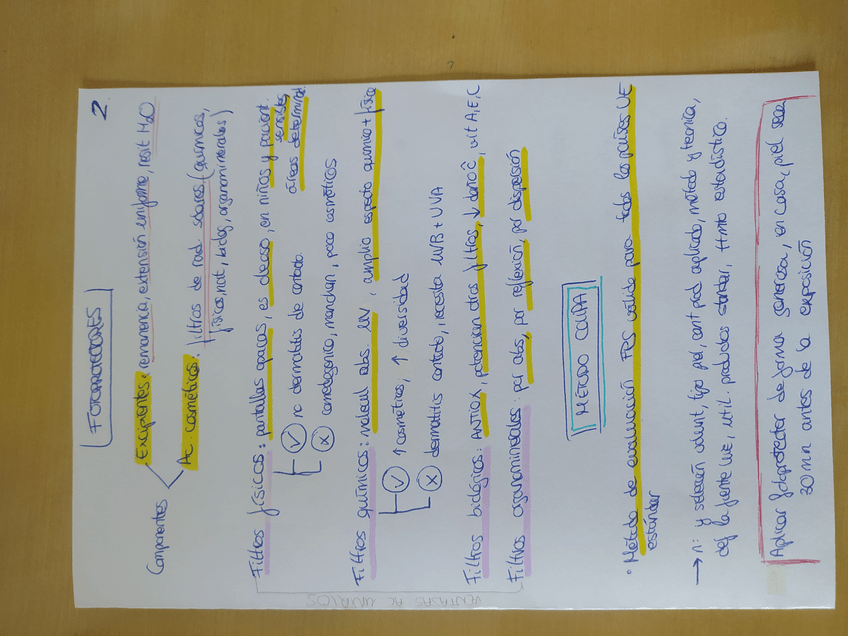 2
FOTOPROTECTORES
Componentes
Excipientes, remanencia, extensión uniforme, resist H₂O
AC. cosméticos: filtros de rad solares (químicos,
físicos, nat, biolog, organominerales)
Filtros físicos: pantallas opacas, es oleoso, en niños y pacient. sensibles,
áreas determinad
V no dermatitis de contacto
X comedogénico, manchan, poco cosméticos
Filtros químicos: molecul abs UV, amplio espectro químico + físico
V ↑ cosméticos, ↑ diversidad
X dermatitis contacto, necesita UVB + UVA
Filtros biológicos: ANTIOX, potencian otros filtros, ↓ daño, vit A, E, C
Filtros organominerales: por abs, por reflexión, por dispersión
VENTAJAS AC
MÉTODO COLIPA
• Método de evaluación FPS válido para todos los países UE
estándar
→ n: y selección volunt, tipo piel, cant prod aplicado, método y tecnica,
def la fuente luz, util. productos standar, ttmto estardístico.
Aplicar fotoprotector de forma generosa, en casa, piel seca
30 min antes de la exposición